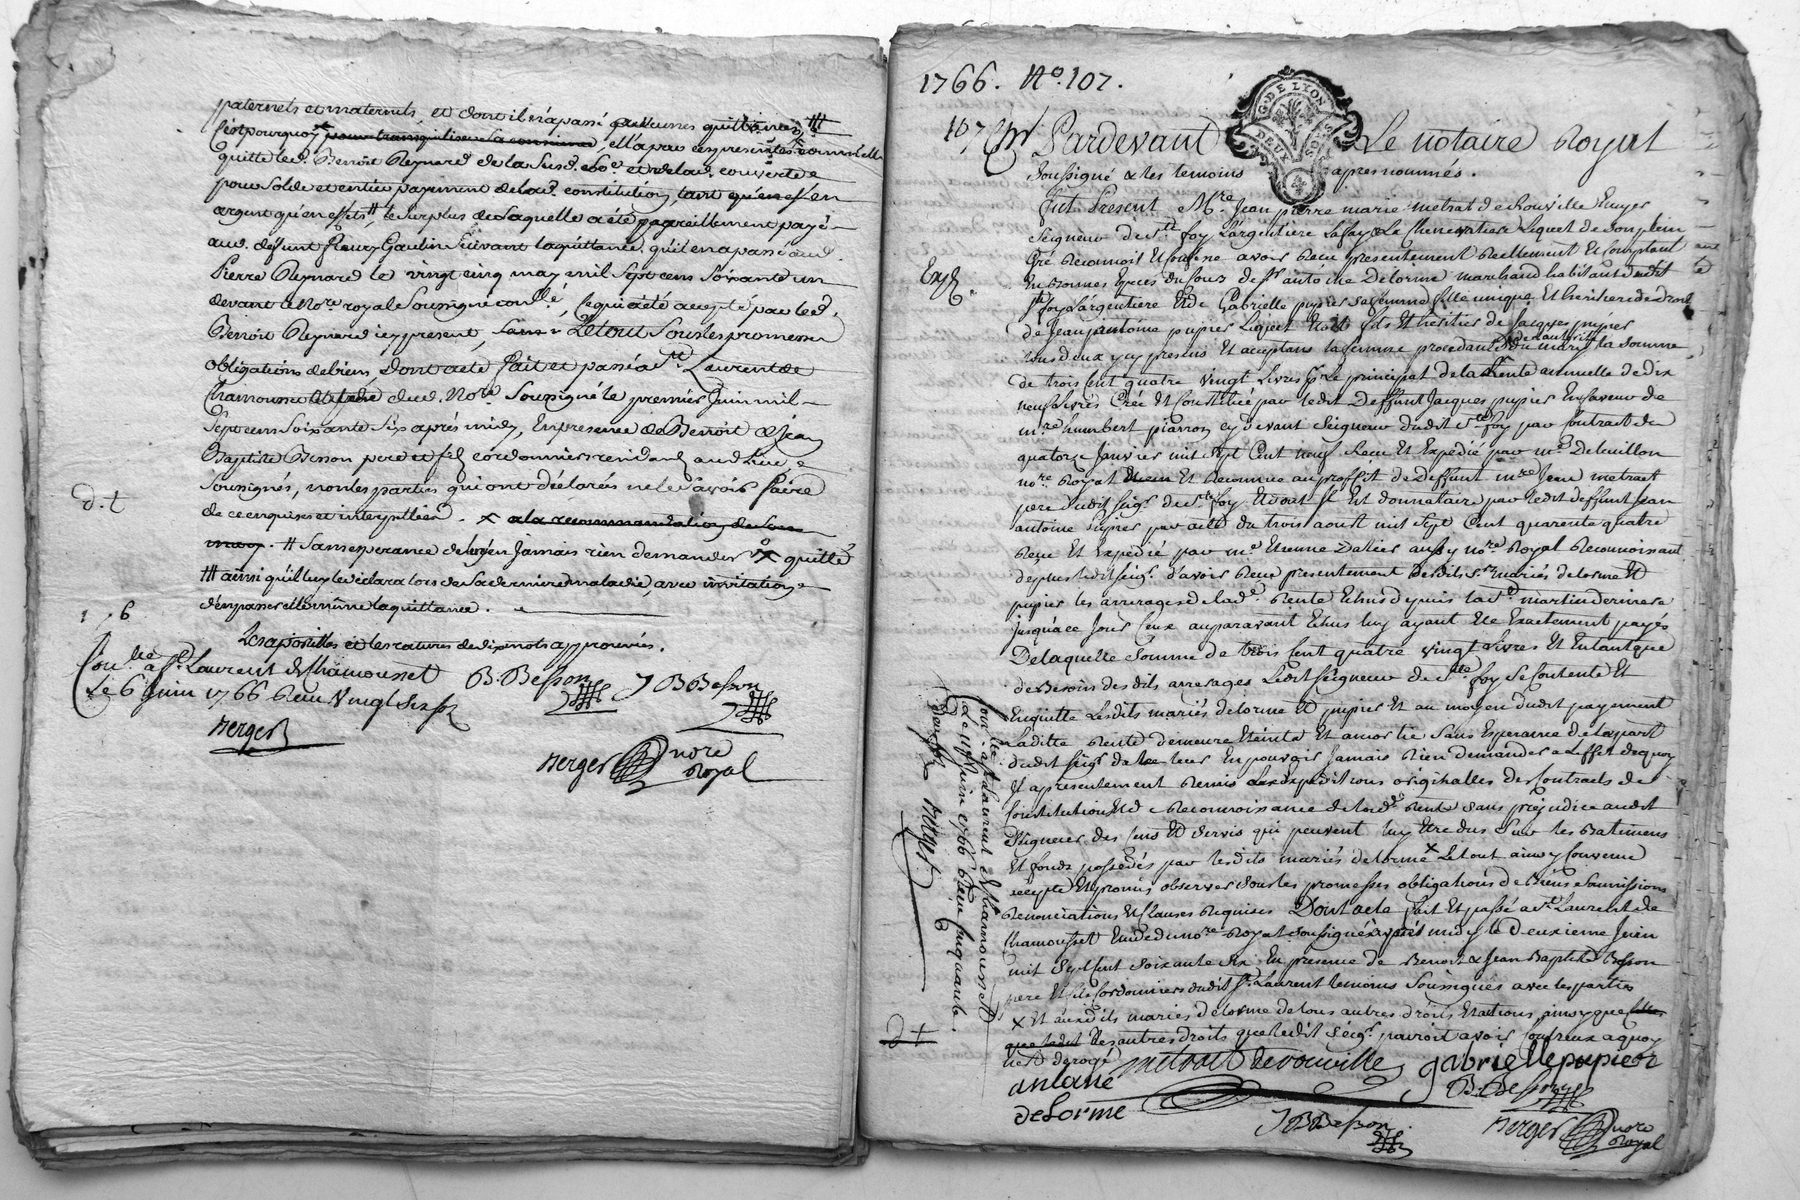 paternels et maternels et dont il n'a passé aucunes quittances, #
C'est pourquoy pour tranquiliser sa conscience, ella par ces presentes
quitte led. Benoit Reynard de la susd. so.e et de lad. couverte
pour solde et entier payement de lad. constitution, tant qu'en
argent qu'en effets # le surplus de laquelle a été pareillement payé
aud. deffunt Fleury Gaulin suivant la quittance qu'il en a passé aud.
Pierre Reynard le vingt cinq may mil sept cens soixante un
devant le No.re royal soussigné con.llé, ce qui a été accepté par led.
Benoit Reynard icy present, Le tout sous les promesses
obligations de biens, Dont acte fait et passé a S.t Laurent de
Chamousset etude dud. No.re soussigné le premier Juin mil
sept cens soixante six après midy, En presence de Benoit & Jean
Baptiste Besson pere et fils cordonniers residants aud. lieu,
soussignés, non les parties qui ont déclarés ne le savoir faire
de ce enquises et interpellées. x a la recommandation de son
mary. # sans esperance de luy en jamais rien demander x quitte
# ainsi qu'il luy le déclara lors de sa derniere maladie, avec invitation
d'en passer elle même la quittance.
d. t
1 . 6
Les apostilles et les ratures de dix mots approuvées.
Con.llé a S.t Laurent de Chamousset
Le 6 Juin 1766 Reçu Vingt six s.
Berger
B. Besson
J B Besson
Berger no.re Royal
1766. N.o 107.
107.e
G. DE LYON
DEUX SOLS
4
Pardevant Le notaire Royal
soussigné & les temoins apres nommés.
Exp.
Fut Present M.re Jean pierre marie metrat de vouville Ecuyer
seigneur de S.te foy L'argentiere Lafay & Le Chenevatiere Lequel de son plein
gré Reconnoit Et confesse avoir Reçu presentement Reellement Et Comptant
En bonnes Especes du Cours de S.r antoine Delorme marchand habitant dudit
S.te foy L'argentiere Et de Gabrielle pupier sa femme fille unique Et heritiere de droit
de Jean antoine pupier Lequel Etoit fils Et heritier de Jacques pupier
tous deux icy presens Et acceptans la femme procedant de l'autorité du mary la somme
de trois Cent quatre vingt Livres p.r Le principal de la Rente annuelle de dix
neuf Livres Créé Et Constituée par ledit Deffunt Jacques pupier En faveur de
m.re humbert pianron cy devant seigneur dudit S.te foy par Contract du
quatorze Janvier mil sept Cent neuf Receu Et Expédié par m.e Delvillon
no.re Royal Et Reconnue au proffit de Deffunt m.re Jean metrat
pere dudit seig.r de S.te foy Et dont il Est donnataire par ledit deffunt Jean
antoine pupier par acte du trois aoust mil sept Cent quarente quatre
Reçu Et Expédié par m.e Etienne Dalier aussy no.re Royal Reconnoissant
de plus ledit seig.r d'avoir Reçu presentement desdits S.rs mariés delorme Et
pupier les arrerages de lad.e Rente Echus depuis la S.t martin derniere
jusqu'a ce Jour Ceux auparavant Echus luy ayant Eté Exactement payés
De laquelle somme de trois Cent quatre vingt Livres Et Entant que
de Besoin desdits arrerages Ledit seigneur de S.te foy se Contente Et
En quitte Lesdits mariés delorme Et pupier Et au moyen dudit payement
Laditte Rente demeure Eteinte Et amortie sans Esperance de la part
dudit seig.r de leur En pouvoir Jamais Rien demander a L'effet de quoy
Il a presentement Remis Les Expeditions originalles des Contracts de
Constitution Et de Reconnoissance de lad.e Rente sans prejudice audit
Seigneur des Cens Et servis qui peuvent luy Etre dus sur les Batimens
Et fonds possédés par lesdits mariés delorme x Le tout ainsy Convenu
accepté Et promis observer sous les promesses obligations de Biens soumissions
Renonciations Et Clauses Requises Dont acte fait Et passé a S.t Laurent de
Chamousset Etude du no.re Royal soussigné après midy le deuxieme Juin
mil sept Cent soixante six En presence de Benoit & Jean Baptiste Besson
pere Et fils Cordonniers dudit S.t Laurent temoins soussignés avec les parties
x Et auxdits mariés delorme de tous autres droits Et actions ainsy que
que ledit des autres droits que ledit seig.r pouroit avoir Contr'eux a quoy
n'est derogé
Con.llé a S.t Laurent de Chamousset
Le 11 Juin 1766 Reçu Cinquante
Berger
d t
metrat de vouville
gabriellepupier
antoine
delorme
B. Besson
J B Besson
Berger no.re Royal